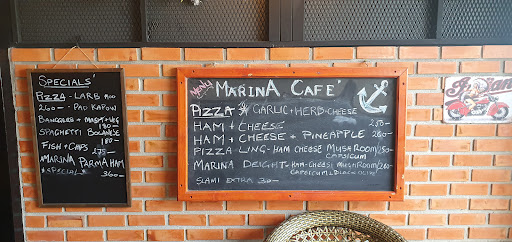 SPECIALS'
PIZZA - LARB MOO
260 - PAD KAPOW
BANGERS + MASH + VEG
190
SPAGHETTI BOLANESE
180
FISH + CHIPS
275
MARINA PARMA HAM
SPECIAL
360
MENU
MARINA CAFE'
PIZZA GARLIC + HERB - CHEESE
HAM + CHEESE 250
HAM + CHEESE + PINEAPPLE 260
PIZZA - LING - HAM CHEESE MUSHROOM 250
CAPSICUM
MARINA DEIGHT - HAM - CHEESE MUSHROOM 260
CAPSICUM BLACK OLIVE
SLAMI EXTRA 30
Indian